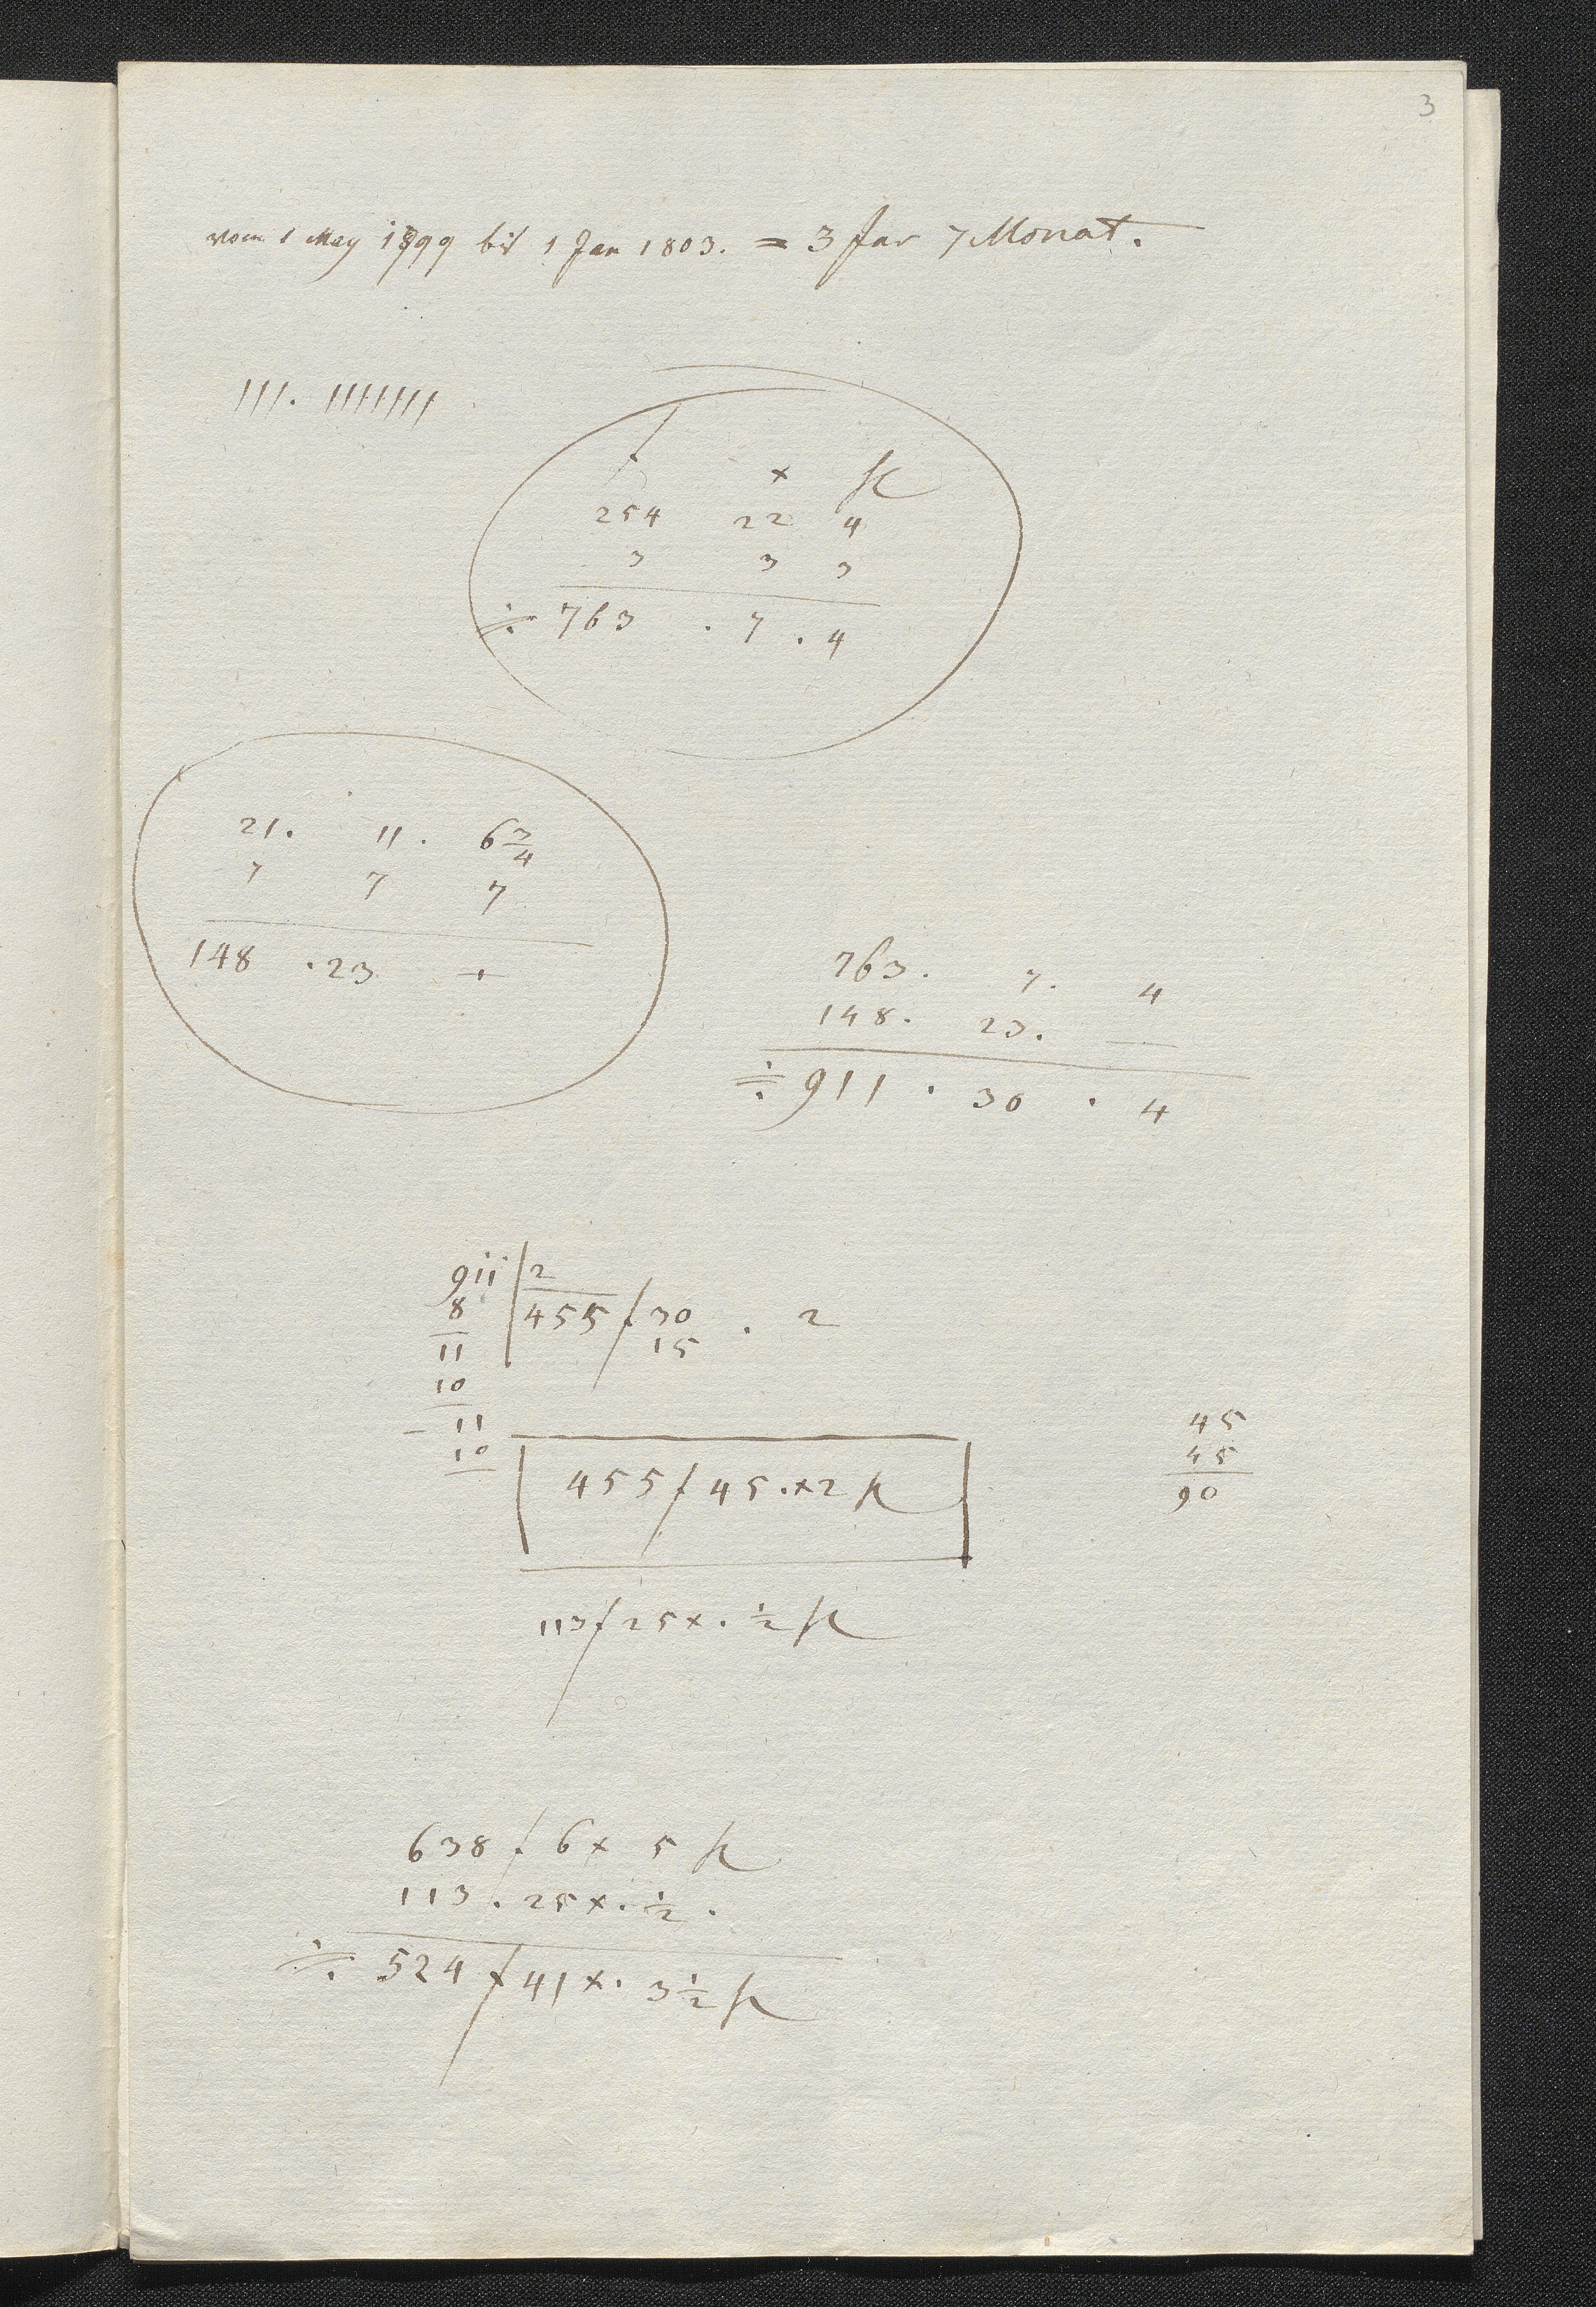 3
vom 1 May 1799 bis 1 Jan 1803. = 3 Jar 7 Monat.
///. ///////
f x
254 22 4
3 3 3
÷ 763 . 7 . 4
21. 11. 6 3/4
7 7 7
148 . 23 +
763. 7. 4
148. 23. —
÷ 911 . 30 . 4
911 | 2
8 | 455 f 30 . 2
11 15
10
11
10
455 f 45. x 2
45
45
90
113 f 25 x. 1/2
638 f 6 x 5
113 . 25 x. 1/2 .
÷ 524 f 41 x. 3 1/2